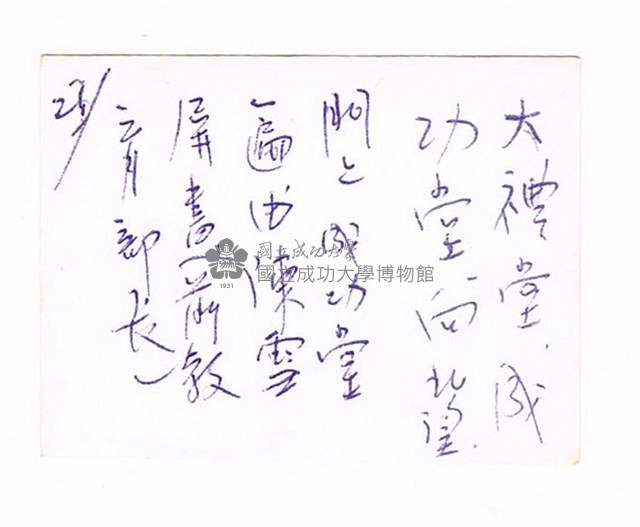 大禮堂,成
功堂向北望.
門上成功堂
匾由陳雪
屏書(前教
育部長)
國立成功大學
國立成功大學博物館
1931